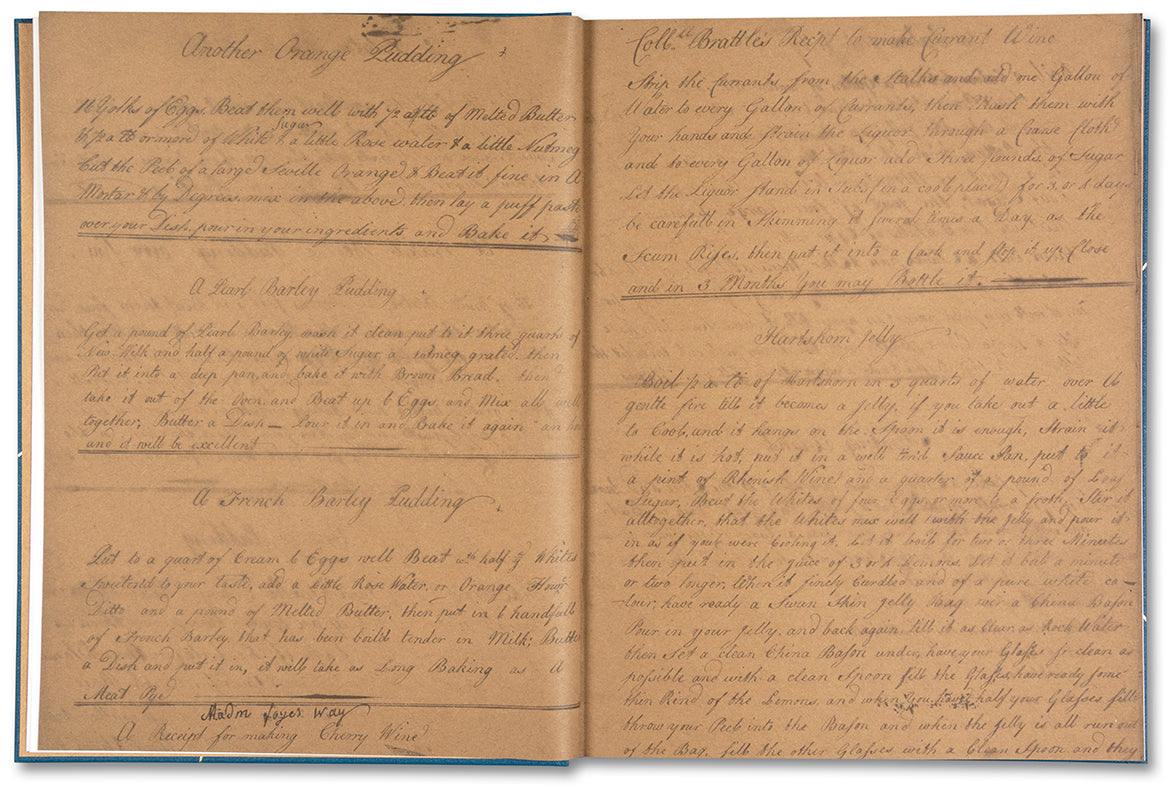 Another Orange Pudding
16 Yolks of Eggs. Beat them well with 1/2 a lb of Melted Butter
1/2 a lb or more of White Sugar & a little Rose water & a little Nutmeg
Cut the Peel of a large Seville Orange & Beat it fine in A
Mortar & by Degrees, mix in the above, then lay a puff paste
over your Dish, pour in your ingredients and Bake it
A Pearl Barley Pudding
Get a pound of Pearl Barley, wash it clean put to it three quarts of
New Milk and half a pound of white Sugar, a nutmeg grated, then
Put it into a deep pan, and bake it with Brown Bread, then
take it out of the Oven, and Beat up 6 Eggs, and Mix all well
together, Butter a Dish — Pour it in and Bake it again an hour
and it will be excellent
A French Barley Pudding
Put to a quart of Cream 6 Eggs well Beat wth half ye Whites
Sweetened to your taste, add a Little Rose Water, or Orange Flowr
Ditto and a pound of Melted Butter, then put in 6 handfulls
of French Barley, that has been boild tender in Milk, Butter
a Dish and put it in, it will take as Long Baking as a
Meat Pye
Madm Joyes Way
A Receipt for making Cherry Wine
Coll. Brattle's Recpt to make Currant Wine
Strip the Currants from the Stalks and add one Gallon of
Water to every Gallon of Currants, then Mash them with
Your hands and Strain the Liquor through a Coarse Cloth
and to every Gallon of Liquor add Three pounds of Sugar
Let the Liquor stand in Tubs (in a cool place) for 3 or 4 days
be carefull in Skimming it several times a Day, as the
Scum Rises, then put it into a Cask and stop it up Close
and in 3 Months You may Bottle it.
Hartshorn Jelly
Boil 1/2 a lb of Hartshorn in 3 quarts of water over a
gentle fire till it becomes a Jelly, if you take out a little
to Cool, and it hangs on the Spoon it is enough, Strain it
while it is hot, put it in a well tin'd Sauce Pan, put to it
a pint of Rhenish Wine and a quarter of a pound of Loaf
Sugar, Beat the Whites of four Eggs or more to a froth, Stir it
alltogether, that the Whites mix well with the Jelly and pour it
in as if you were Cooling it, Let it boil two or three Minutes
then put in the juice of 3 or 4 Lemons, Let it boil a minute
or two longer, When it finely Curdled and of a pure white co-
lour, have ready a Swan Skin Jelly Bag over a China Bason
Pour in your Jelly, and back again till it as Clear as Rock Water
then Set a clean China Bason under, have your Glasses as clean as
possible and with a clean Spoon fill the Glasses, have ready some
thin Rind of the Lemons, and when you have half your Glasses fill'd
throw your Peel into the Bason and when the Jelly is all run out
of the Bag, fill the other Glasses with a Clean Spoon and they